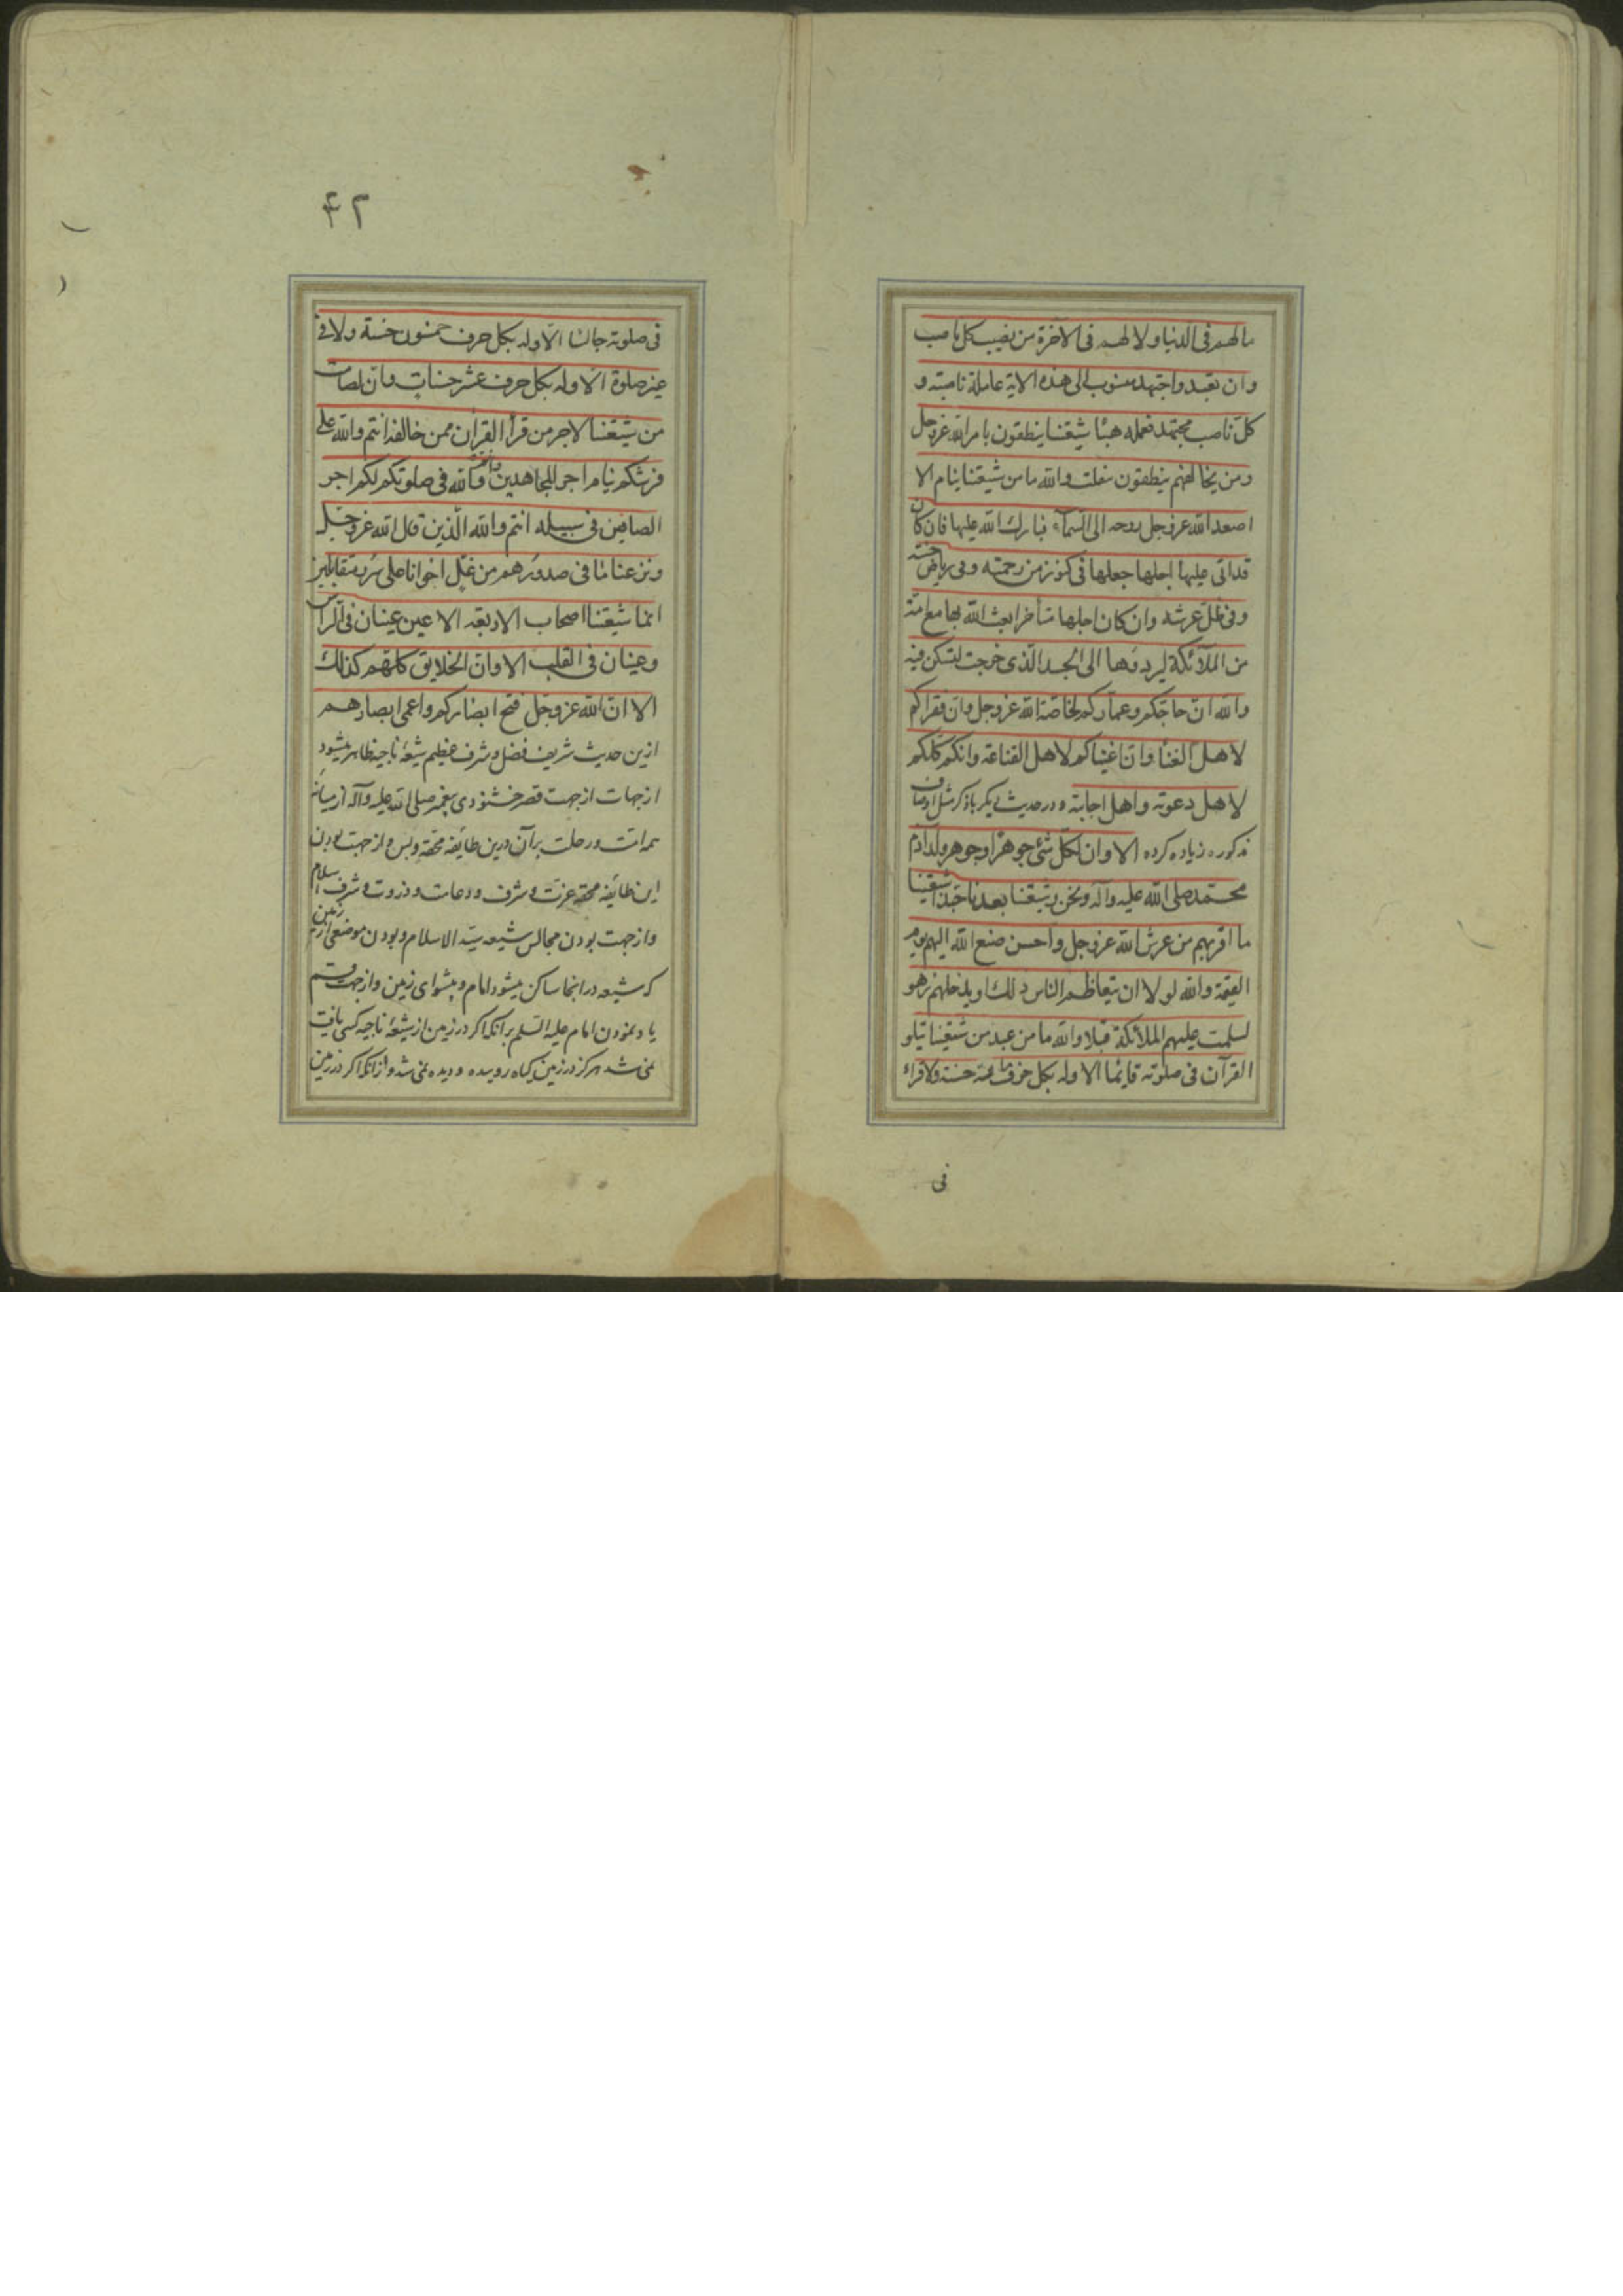 ما لهم فی الدنیا ولا لهم فی الآخرة من نصیب کل ناصب
وان تعبد واجتهد منسوب الی هذه الایة عاملة ناصبة و
کلّ ناصب مجتهد فعمله هبئا شیعتنا ینطقون بامر الله عزوجل
ومن یخالفهم ینطقون بتفلت والله ما من شیعتنا ینام الا
اصعد الله عزوجل روحه الی السمآء فبارك الله علیها فان کان
قد اتی علیها اجلها جعلها فی کنوز من رحمته وفی ریاض جنته
وفی ظلّ عرشه وان کان اجلها متأخرا بعث الله بها مع امنته
من الملآئکة لیردوها الی الجسد الذی خرجت لتسکن فیه
والله انّ حاجکم وعمّارکم لخاصة الله عزوجل وانّ فقراکم
لاهل الغنا وانّ اغنیاکم لاهل القناعة وانکم کلّکم
لاهل دعوته واهل اجابته ودر حدیث دیکر باذکر مثل اوصاف
مذکوره زیاده کرده الا وان لکل شئ جوهرا وجوهر ولد آدم
محمّد صلی الله علیه وآله ونحن وشیعتنا بعدنا حبّذا شیعتنا
ما اقربهم من عرش الله عزوجل واحسن صنع الله الیهم یوم
القیمة والله لولا ان یتعاظم الناس ذلك او یدخلهم زهو
لسلمت علیهم الملائکة قبلا والله ما من عبد من شیعتنا یتلو
القرآن فی صلوته قایما الا وله بکل حرف مائة حسنة ولا قراء
فی
۴۲
فی صلوته جالسا الّا وله بکل حرف خمسون حسنة ولا فی
غیر صلوة الّا وله بکل حرف عشر حسنات وانّ للصامت
من شیعتنا لاجر من قرأ القرآن ممن خالفه انتم والله علی
فرشکم نیام اجر المجاهدین وانتم والله فی صلوتکم لکم اجر
الصافین فی سبیله انتم والله الّذین قال الله عزوجل
ونزعنا ما فی صدورهم من غلّ اخوانا علی سرر متقابلین
انما شیعتنا اصحاب الاربعة الاعین عینان فی الراس
وعینان فی القلب الا وانّ الخلایق کلهم کذلك
الا انّ الله عزوجل فتح ابصارکم واعمی ابصارهم
ازین حدیث شریف فضل وشرف عظیم شیعهٔ ناجیه ظاهر میشود
از جهات از جهت قصر خشنودی پیغمبر صلی الله علیه وآله از میانه
همه امّت ورحلت بر آن درین طایفه محقه وبس واز جهت بودن
این طایفه محقه عزت وشرف ودعامت وذروت وشرف اسلام
واز جهت بودن مجالس شیعه سیّد الاسلام وبودن موضعی از زمین
که شیعه در انجا ساکن میشود امام وپیشوای زمین واز جهت قسم
یاد نمودن امام علیه السلم بر آنکه اکر در زمین از شیعهٔ ناجیه کسی یافت
نمی شد هرکز در زمین کیاه روییده ودیده نمی شد واز آنکه اکر در زمین